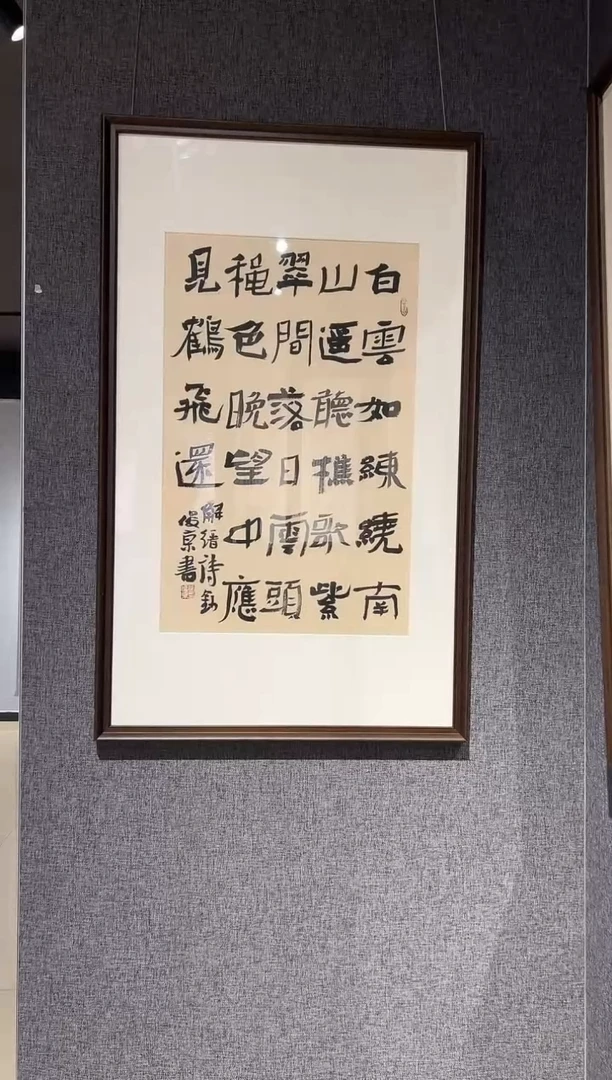 白雲如練繞南
山遥聽樵歌紫
翠間落日雲頭
穐色晚望中應
見鶴飛還
解縉詩
俊京書